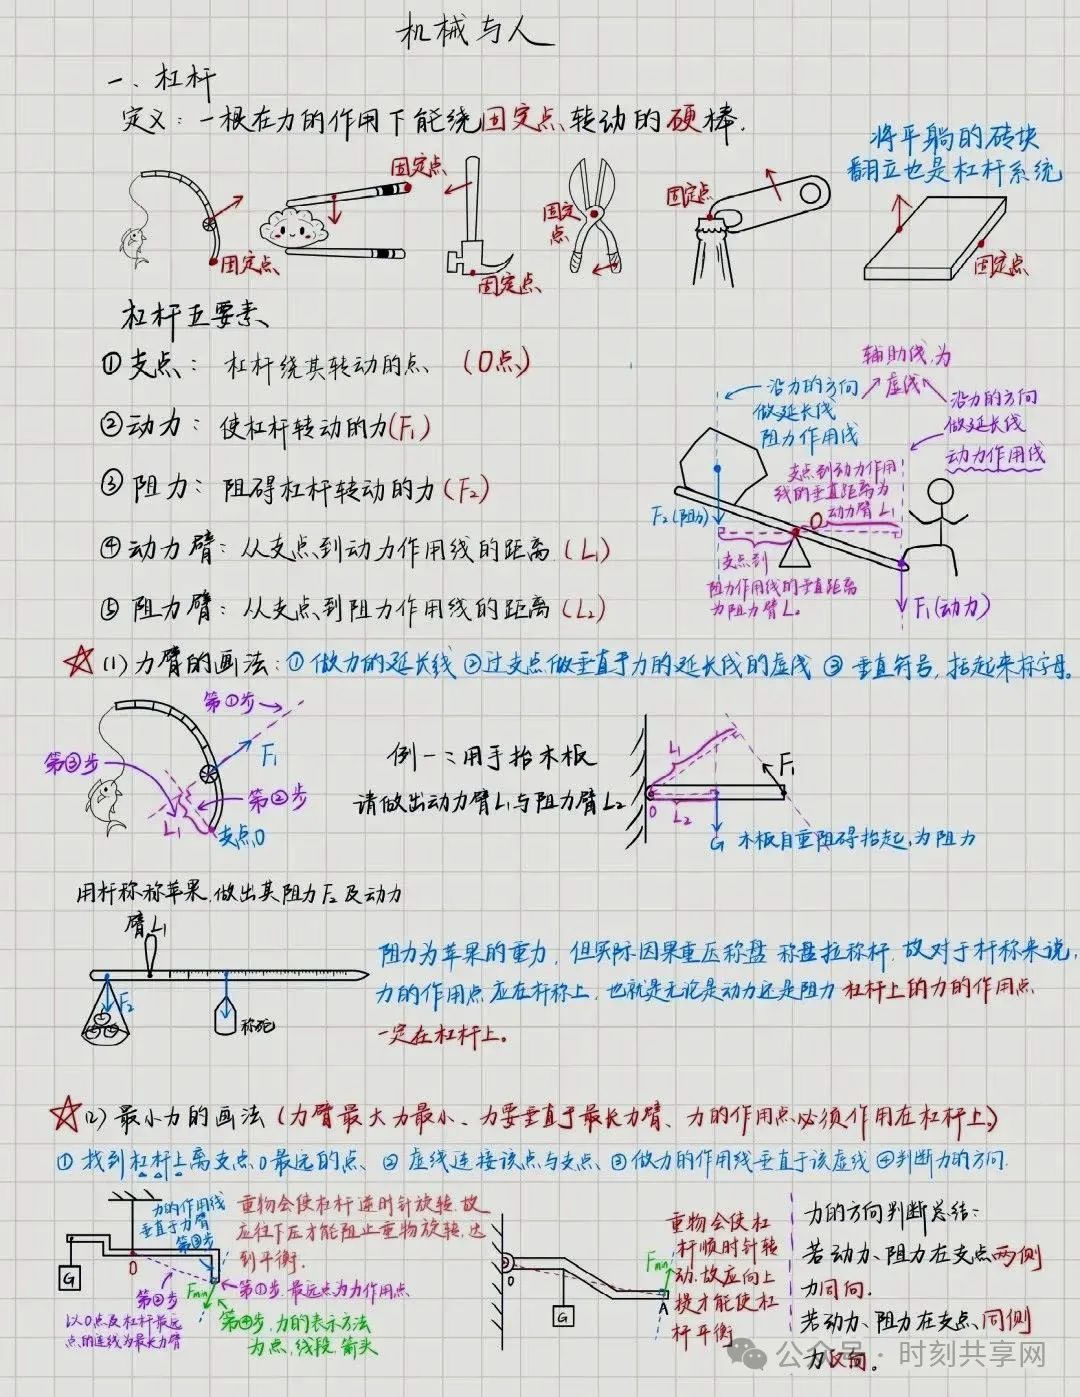 机械与人
一、杠杆
定义：一根在力的作用下能绕固定点转动的硬棒.
将平躺的砖块
翻立也是杠杆系统
固定点
固定点
固定点
固定
点
固定点
固定点
杠杆五要素、
①支点：杠杆绕其转动的点、(O点)
②动力：使杠杆转动的力(F₁)
③阻力：阻碍杠杆转动的力(F₂)
④动力臂：从支点到动力作用线的距离(L₁)
⑤阻力臂：从支点到阻力作用线的距离(L₂)
辅助线为
虚线
沿力的方向
做延长线
阻力作用线
沿力的方向
做延长线
动力作用线
支点到动力作用
线的垂直距离为
动力臂L₁
F₂(阻力)
O
支点到
阻力作用线的垂直距离
为阻力臂L₂
F₁(动力)
☆(1)力臂的画法：①做力的延长线②过支点做垂直于力的延长线的虚线③垂直符号,括起来标字母。
第①步
第③步
F₁
第②步
L₁
支点O
例一：用手抬木板
请做出动力臂L₁与阻力臂L₂
L₁
F₁
O
L₂
G 木板自重阻碍抬起,为阻力
用杆称称苹果,做出其阻力F₂及动力
臂L₁
F₂
称砣
阻力为苹果的重力,但实际因果重压称盘 称盘拉称杆,故对于杆称来说,
力的作用点应在杆称上,也就是无论是动力还是阻力 杠杆上的力的作用点
一定在杠杆上。
☆(2)最小力的画法(力臂最大力最小、力要垂直于最长力臂、力的作用点必须作用在杠杆上)
①找到杠杆上离支点O最远的点、②虚线连接该点与支点、③做力的作用线垂直于该虚线④判断力的方向.
力的作用线
垂直于力臂
第③步
G
O
第②步
以O点及杠杆最远
点的连线为最长力臂
Fmin
重物会使杠杆逆时针旋转,故
应往下压才能阻止重物旋转,达
到平衡.
第①步、最远点为力作用点
第④步、力的表示方法
为点,线段,箭头
O
G
Fmin
A
重物会使杠
杆顺时针转
动,故应向上
提才能使杠
杆平衡
力的方向判断总结：
若动力、阻力在支点两侧
力同向.
若动力、阻力在支点同侧
力反向。
公众号·时刻共享网